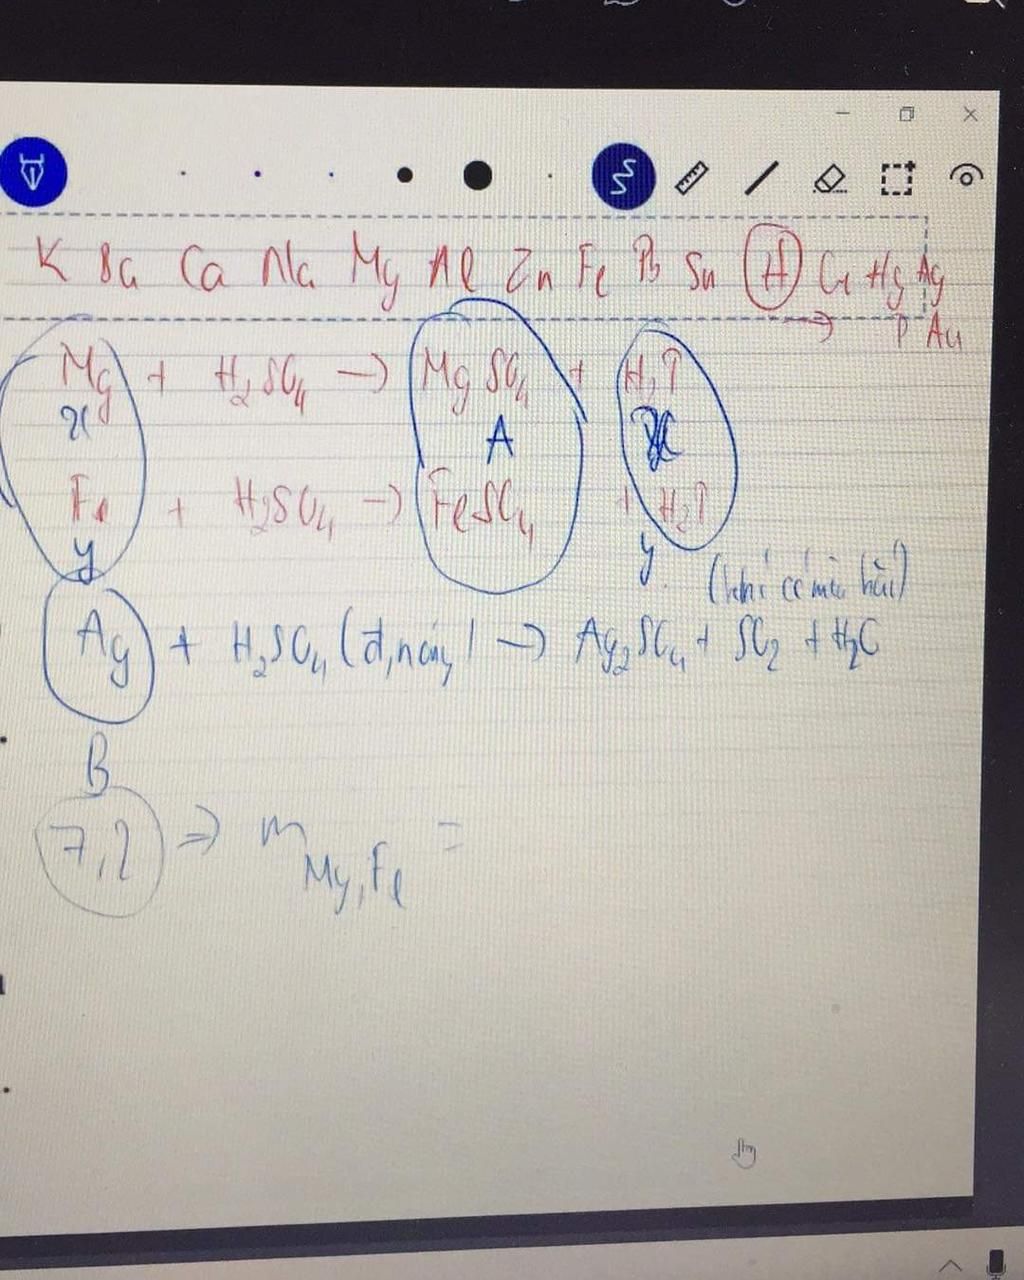 K Ba Ca Na Mg Al Zn Fe Pb Sn H Cu Hg Ag
P Au
Mg + H2SO4 → MgSO4 + H2↑
x A x
Fe + H2SO4 → FeSO4 + H2↑
y y
(khí có mùi hắc)
Ag + H2SO4 (đ, nóng) → Ag2SO4 + SO2 + H2O
B
7,2 ⇒ m Mg, Fe =